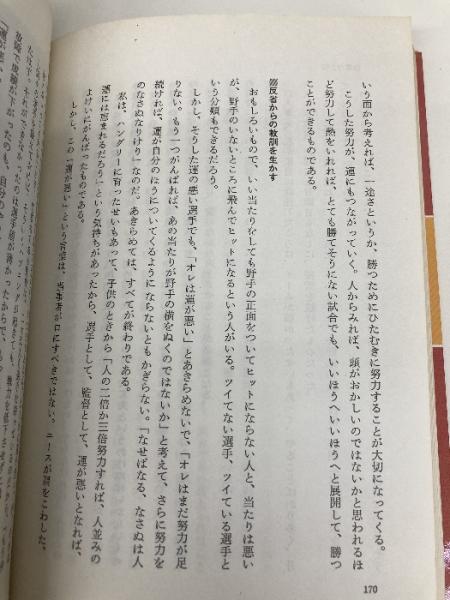 いう面から考えれば、一途さというか、勝つためにひたむきに努力することが大切になってくる。
こうした努力が、運にもつながっていく。人からみれば、頭がおかしいのではないかと思われるほ
ど努力して熱をいれれば、とても勝てそうにない試合でも、いいほうへいいほうへと展開して、勝つ
ことができるものである。
反省からの教訓を生かす
おもしろいもので、いい当たりをしても野手の正面をついてヒットにならない人と、当たりは悪い
が、野手のいないところに飛んでヒットになるという人がいる。ツイてない選手、ツイている選手と
いう分類もできるだろう。
しかし、そうした運の悪い選手でも、「オレは運が悪い」とあきらめないで、「オレはまだ努力が足
りない。もう一つがんばれば、あの当たりが野手の横をぬくのではないか」と考えて、さらに努力を
続ければ、運が自分のほうについてくるようにならないともかぎらない。「なせばなる、なさぬは人
のなさぬなりけり」なのだ。あきらめては、すべてが終わりである。
私は、ハングリーに育ったせいもあって、子供のときから「人の二倍か三倍努力すれば、人並みの
運には恵まれるだろう」という気持ちがあったから、選手として、監督として、運が悪いとなれば、
よけいにがんばったものである。
しかし、この「運が悪い」という言葉は、当事者が口にすべきではない。エースが肩をこわした、
170